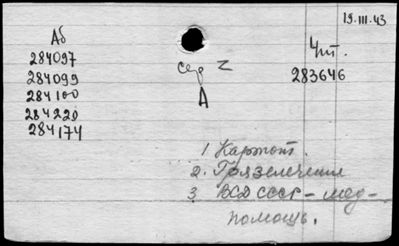 19.III.43
Аб
284097
284099
284100
284220
284174
сер Z
А
Чит.
283646
1. Картот.
2. Грязелечение
3. ВСД СССР – мед –
помощь.